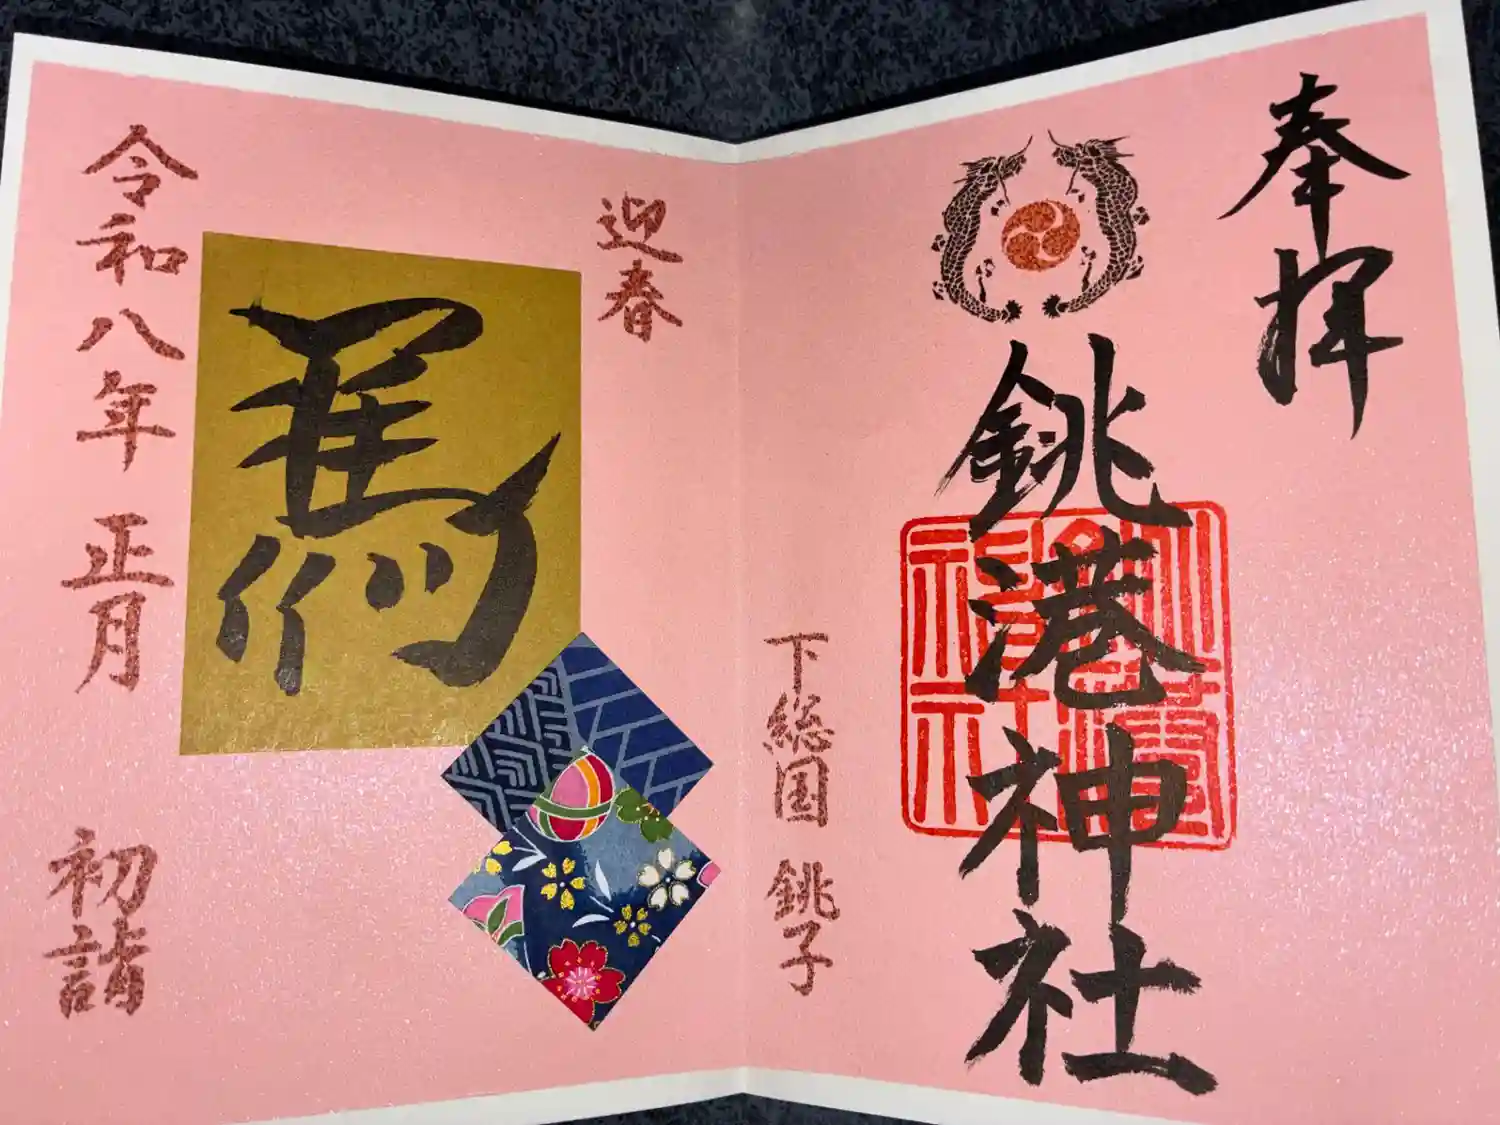 奉拝
銚港神社
下総国 銚子
迎春
馬
令和八年 正月 初詣